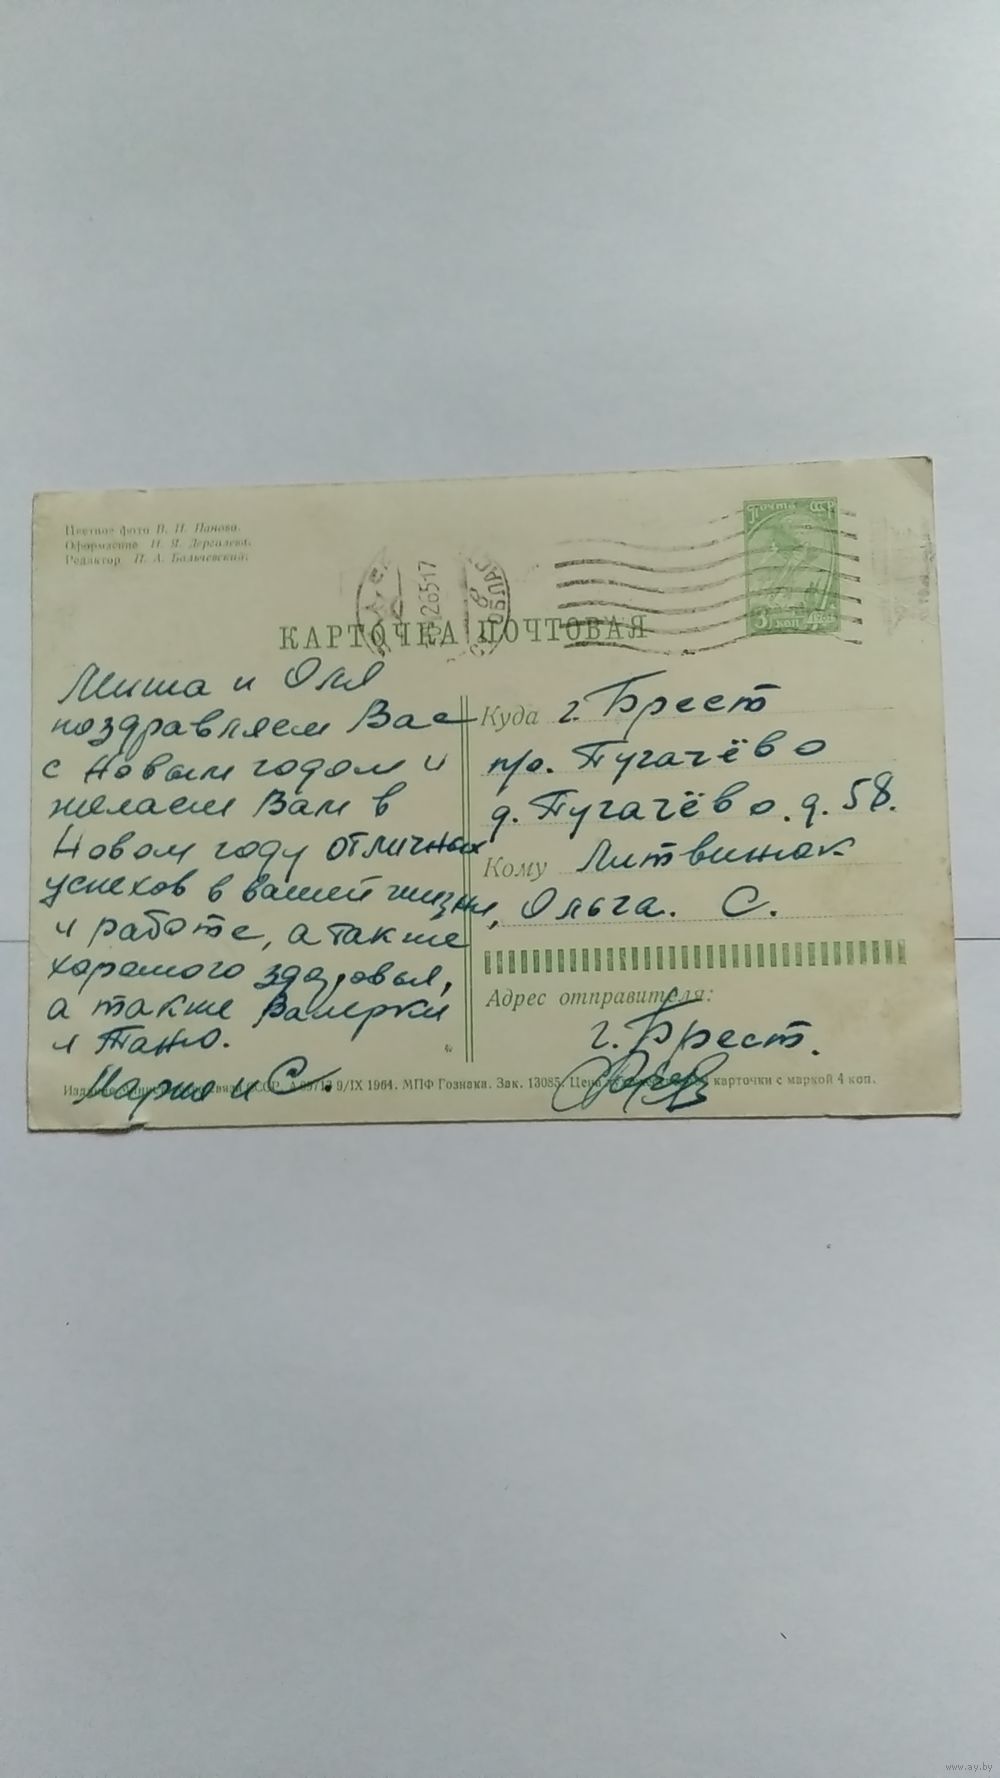 Цветное фото В. И. Панова.
Оформление И. Я. Дергалева.
Редактор П. А. Бальчевский.
Почта СССР
3 коп
КАРТОЧКА ПОЧТОВАЯ
Миша и Оля
поздравляем Вас
с Новым годом и
желаем Вам в
Новом году отличных
успехов в вашей жизни,
и работе, а также
хорошого здоровья,
а также Валерки
и Таню.
Мария и С.
Куда г. Брест
п/о. Пугачёво
д. Пугачёво. д. 58.
Кому Литвинюк
Ольга. С.
Адрес отправителя:
г. Брест.
связи СССР. 9/IX 1964. МПФ Гознака. Зак. 13085. Цена карточки с маркой 4 коп.
www.ay.by